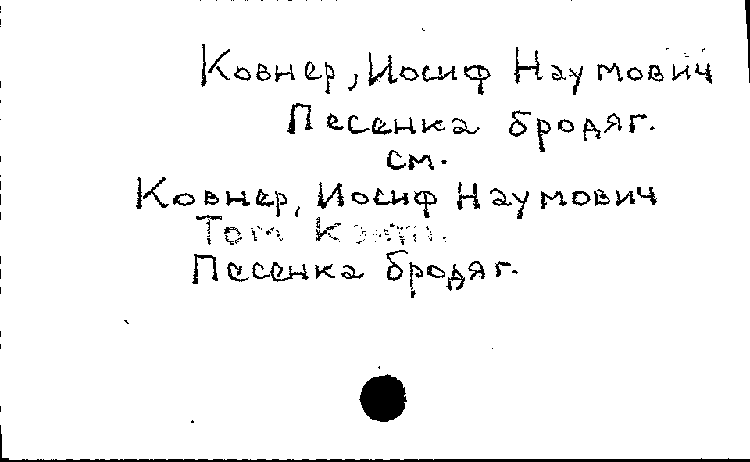 Ковнер, Иосиф Наумович
Песенка бродяг.
см.
Ковнер, Иосиф Наумович
Том Кэнти.
Песенка бродяг.